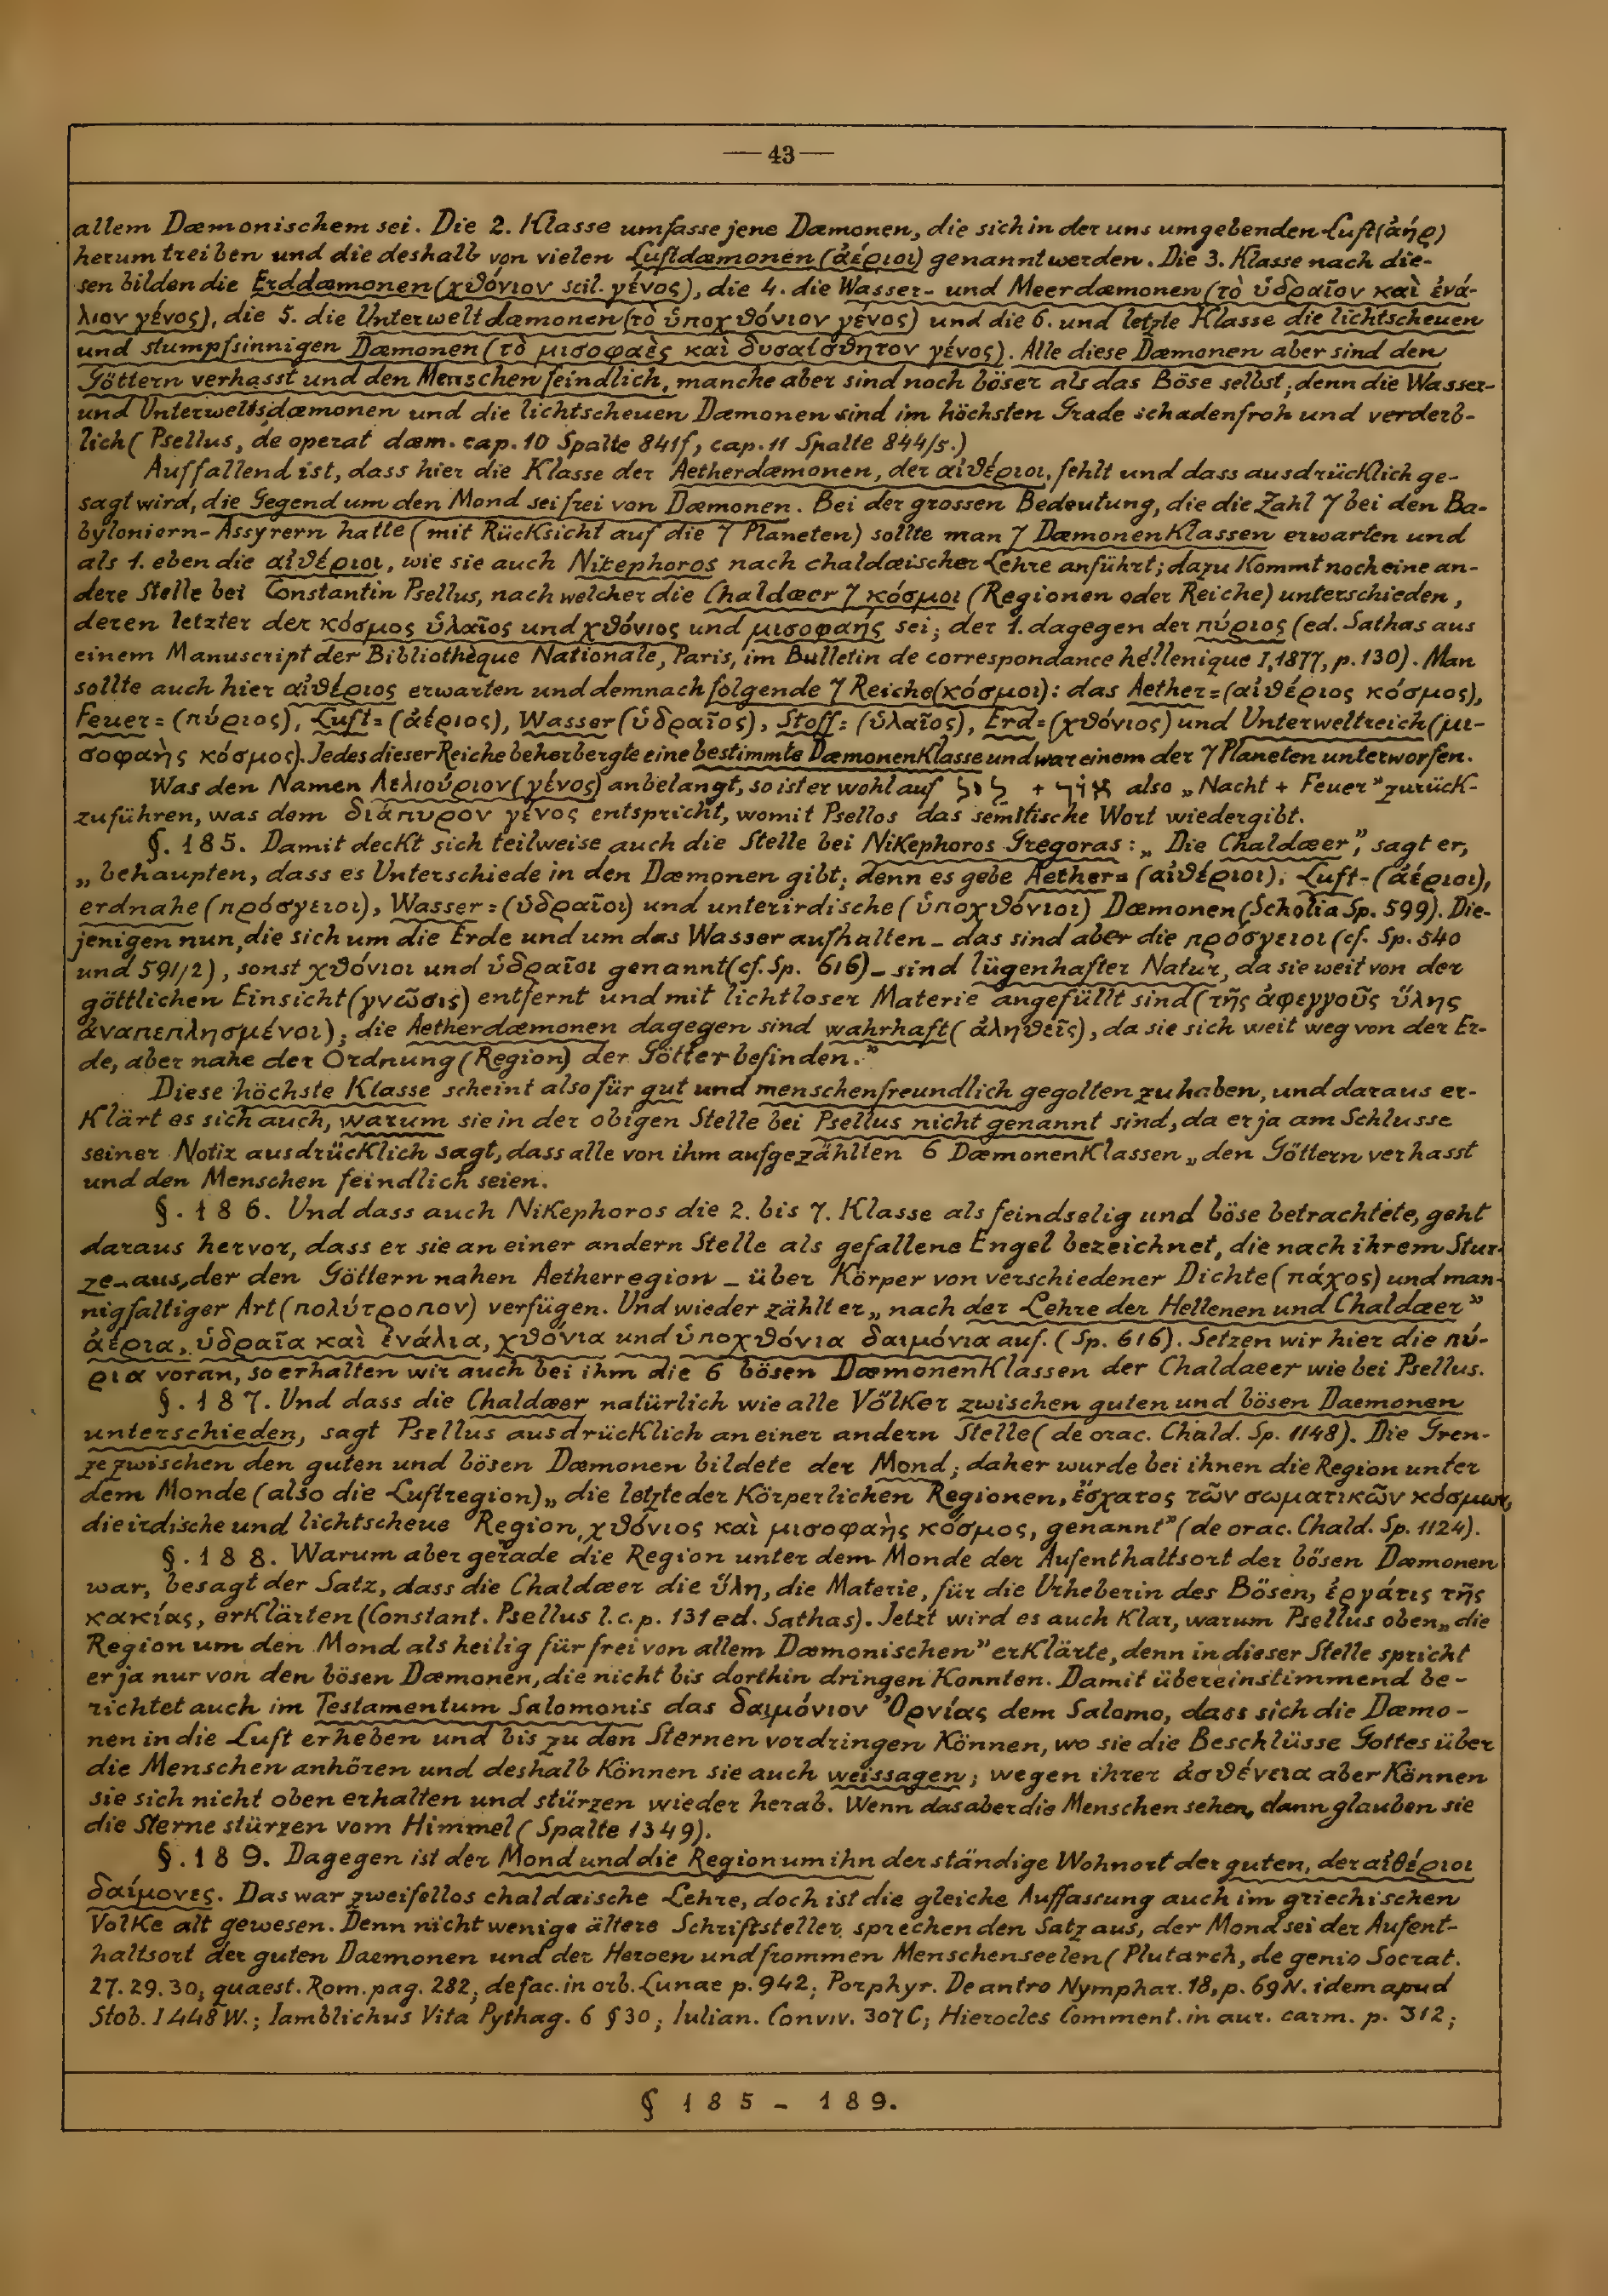 — 43 —
allem Dæmonischem sei. Die 2. Klasse umfasse jene Dæmonen, die sich in der uns umgebenden Luft (ἀήρ)
herumtreiben und die deshalb von vielen Luftdæmonen (ἀέριοι) genannt werden. Die 3. Klasse nach die-
sen bilden die Erddæmonen (χθόνιον scil. γένος), die 4. die Wasser- und Meerdæmonen (τὸ ὑδραῖον καὶ ἐνά-
λιον γένος), die 5. die Unterweltdæmonen (τὸ ὑποχθόνιον γένος) und die 6. und letzte Klasse die lichtscheuen
und stumpfsinnigen Dæmonen (τὸ μισοφαὲς καὶ δυσαίσθητον γένος). Alle diese Dæmonen aber sind den
Göttern verhasst und den Menschen feindlich, manche aber sind noch böser als das Böse selbst; denn die Wasser-
und Unterweltsdæmonen und die lichtscheuen Dæmonen sind im höchsten Grade schadenfroh und verderb-
lich (Psellus, de operat dæm. cap. 10 Spalte 841f, cap. 11 Spalte 844/5.)
Auffallend ist, dass hier die Klasse der Aetherdæmonen, der αἰθέριοι, fehlt und dass ausdrücklich ge-
sagt wird, die Gegend um den Mond sei frei von Dæmonen. Bei der grossen Bedeutung, die die Zahl 7 bei den Ba-
byloniern-Assyrern hatte (mit Rücksicht auf die 7 Planeten) sollte man 7 Dæmonenklassen erwarten und
als 1. eben die αἰθέριοι, wie sie auch Nikephoros nach chaldæischer Lehre anführt; dazu kommt noch eine an-
dere Stelle bei Constantin Psellus, nach welcher die Chaldæer 7 κόσμοι (Regionen oder Reiche) unterschieden,
deren letzter der κόσμος ὑλαῖος und χθόνιος und μισοφαής sei; der 1. dagegen der πύριος (ed. Sathas aus
einem Manuscript der Bibliothèque Nationale, Paris, im Bulletin de correspondance héllenique I, 1877, p. 130). Man
sollte auch hier αἰθέριος erwarten und demnach folgende 7 Reiche (κόσμοι): das Aether= (αἰθέριος κόσμος),
Feuer= (πύριος), Luft= (ἀέριος), Wasser (ὑδραῖος), Stoff= (ὑλαῖος), Erd= (χθόνιος) und Unterweltreich (μι-
σοφαὴς κόσμος). Jedes dieser Reiche beherbergte eine bestimmte Dæmonenklasse und war einem der 7 Planeten unterworfen.
Was den Namen Λελιούριον (γένος) anbelangt, so ist er wohl auf ליל + אור also „Nacht + Feuer” zurück-
zuführen, was dem διάπυρον γένος entspricht, womit Psellos das semitische Wort wiedergibt.
§. 185. Damit deckt sich teilweise auch die Stelle bei Nikephoros Gregoras: „Die Chaldæer”, sagt er,
„behaupten, dass es Unterschiede in den Dæmonen gibt; denn es gebe Aether= (αἰθέριοι), Luft- (ἀέριοι),
erdnahe (πρόσγειοι), Wasser= (ὑδραῖοι) und unterirdische (ὑποχθόνιοι) Dæmonen (Scholia Sp. 599). Die-
jenigen nun, die sich um die Erde und um das Wasser aufhalten – das sind aber die πρόσγειοι (cf. Sp. 540
und 591/2), sonst χθόνιοι und ὑδραῖοι genannt (cf. Sp. 616) – sind lügenhafter Natur, da sie weit von der
göttlichen Einsicht (γνῶσις) entfernt und mit lichtloser Materie angefüllt sind (τῆς ἀφεγγοῦς ὕλης
ἀναπεπλησμένοι); die Aetherdæmonen dagegen sind wahrhaft (ἀληθεῖς), da sie sich weit weg von der Er-
de, aber nahe der Ordnung (Region) der Götter befinden.”
Diese höchste Klasse scheint also für gut und menschenfreundlich gegolten zu haben, und daraus er-
klärt es sich auch, warum sie in der obigen Stelle bei Psellus nicht genannt sind, da er ja am Schlusse
seiner Notiz ausdrücklich sagt, dass alle von ihm aufgezählten 6 Dæmonenklassen „den Göttern verhasst
und den Menschen feindlich seien.
§. 186. Und dass auch Nikephoros die 2. bis 7. Klasse als feindselig und böse betrachtete, geht
daraus hervor, dass er sie an einer andern Stelle als gefallene Engel bezeichnet, die nach ihrem Stur-
ze – aus der den Göttern nahen Aetherregion – über Körper von verschiedener Dichte (πάχος) und man-
nigfaltiger Art (πολύτροπον) verfügen. Und wieder zählt er „nach der Lehre der Hellenen und Chaldæer”
ἀέρια, ὑδραῖα καὶ ἐνάλια, χθόνια und ὑποχθόνια δαιμόνια auf. (Sp. 616). Setzen wir hier die πύ-
ρια voran, so erhalten wir auch bei ihm die 6 bösen Dæmonenklassen der Chaldaeer wie bei Psellus.
§. 187. Und dass die Chaldæer natürlich wie alle Völker zwischen guten und bösen Daemonen
unterschieden, sagt Psellus ausdrücklich an einer andern Stelle (de orac. Chald. Sp. 1148). Die Gren-
ze zwischen den guten und bösen Dæmonen bildete der Mond; daher wurde bei ihnen die Region unter
dem Monde (also die Luftregion) „die letzte der körperlichen Regionen, ἔσχατος τῶν σωματικῶν κόσμων,
die irdische und lichtscheue Region, χθόνιος καὶ μισοφαὴς κόσμος, genannt” (de orac. Chald. Sp. 1124).
§. 188. Warum aber gerade die Region unter dem Monde der Aufenthaltsort der bösen Dæmonen
war, besagt der Satz, dass die Chaldæer die ὕλη, die Materie, für die Urheberin des Bösen, ἐργάτις τῆς
κακίας, erklärten (Constant. Psellus l. c. p. 131 ed. Sathas). Jetzt wird es auch klar, warum Psellus oben „die
Region um den Mond als heilig für frei von allem Dæmonischen” erklärte, denn in dieser Stelle spricht
er ja nur von den bösen Dæmonen, die nicht bis dorthin dringen konnten. Damit übereinstimmend be-
richtet auch im Testamentum Salomonis das δαιμόνιον Ὀρνίας dem Salomo, dass sich die Dæmo-
nen in die Luft erheben und bis zu den Sternen vordringen können, wo sie die Beschlüsse Gottes über
die Menschen anhören und deshalb können sie auch weissagen; wegen ihrer ἀσθένεια aber können
sie sich nicht oben erhalten und stürzen wieder herab. Wenn das aber die Menschen sehen, dann glauben sie
die Sterne stürzen vom Himmel (Spalte 1349).
§. 189. Dagegen ist der Mond und die Region um ihn der ständige Wohnort der guten, der αἰθέριοι
δαίμονες. Das war zweifellos chaldæische Lehre, doch ist die gleiche Auffassung auch im griechischen
Volke alt gewesen. Denn nicht wenige ältere Schriftsteller sprechen den Satz aus, der Mond sei der Aufent-
haltsort der guten Daemonen und der Heroen und frommen Menschenseelen (Plutarch, de genio Socrat.
27. 29. 30; quaest. Rom. pag. 282; de fac. in orb. Lunae p. 942; Porphyr. De antro Nymphar. 18, p. 69 N. idem apud
Stob. I 448 W.; Iamblichus Vita Pythag. 6 § 30; Iulian. Conviv. 307 C; Hierocles Comment. in aur. carm. p. 312;
§ 185 – 189.